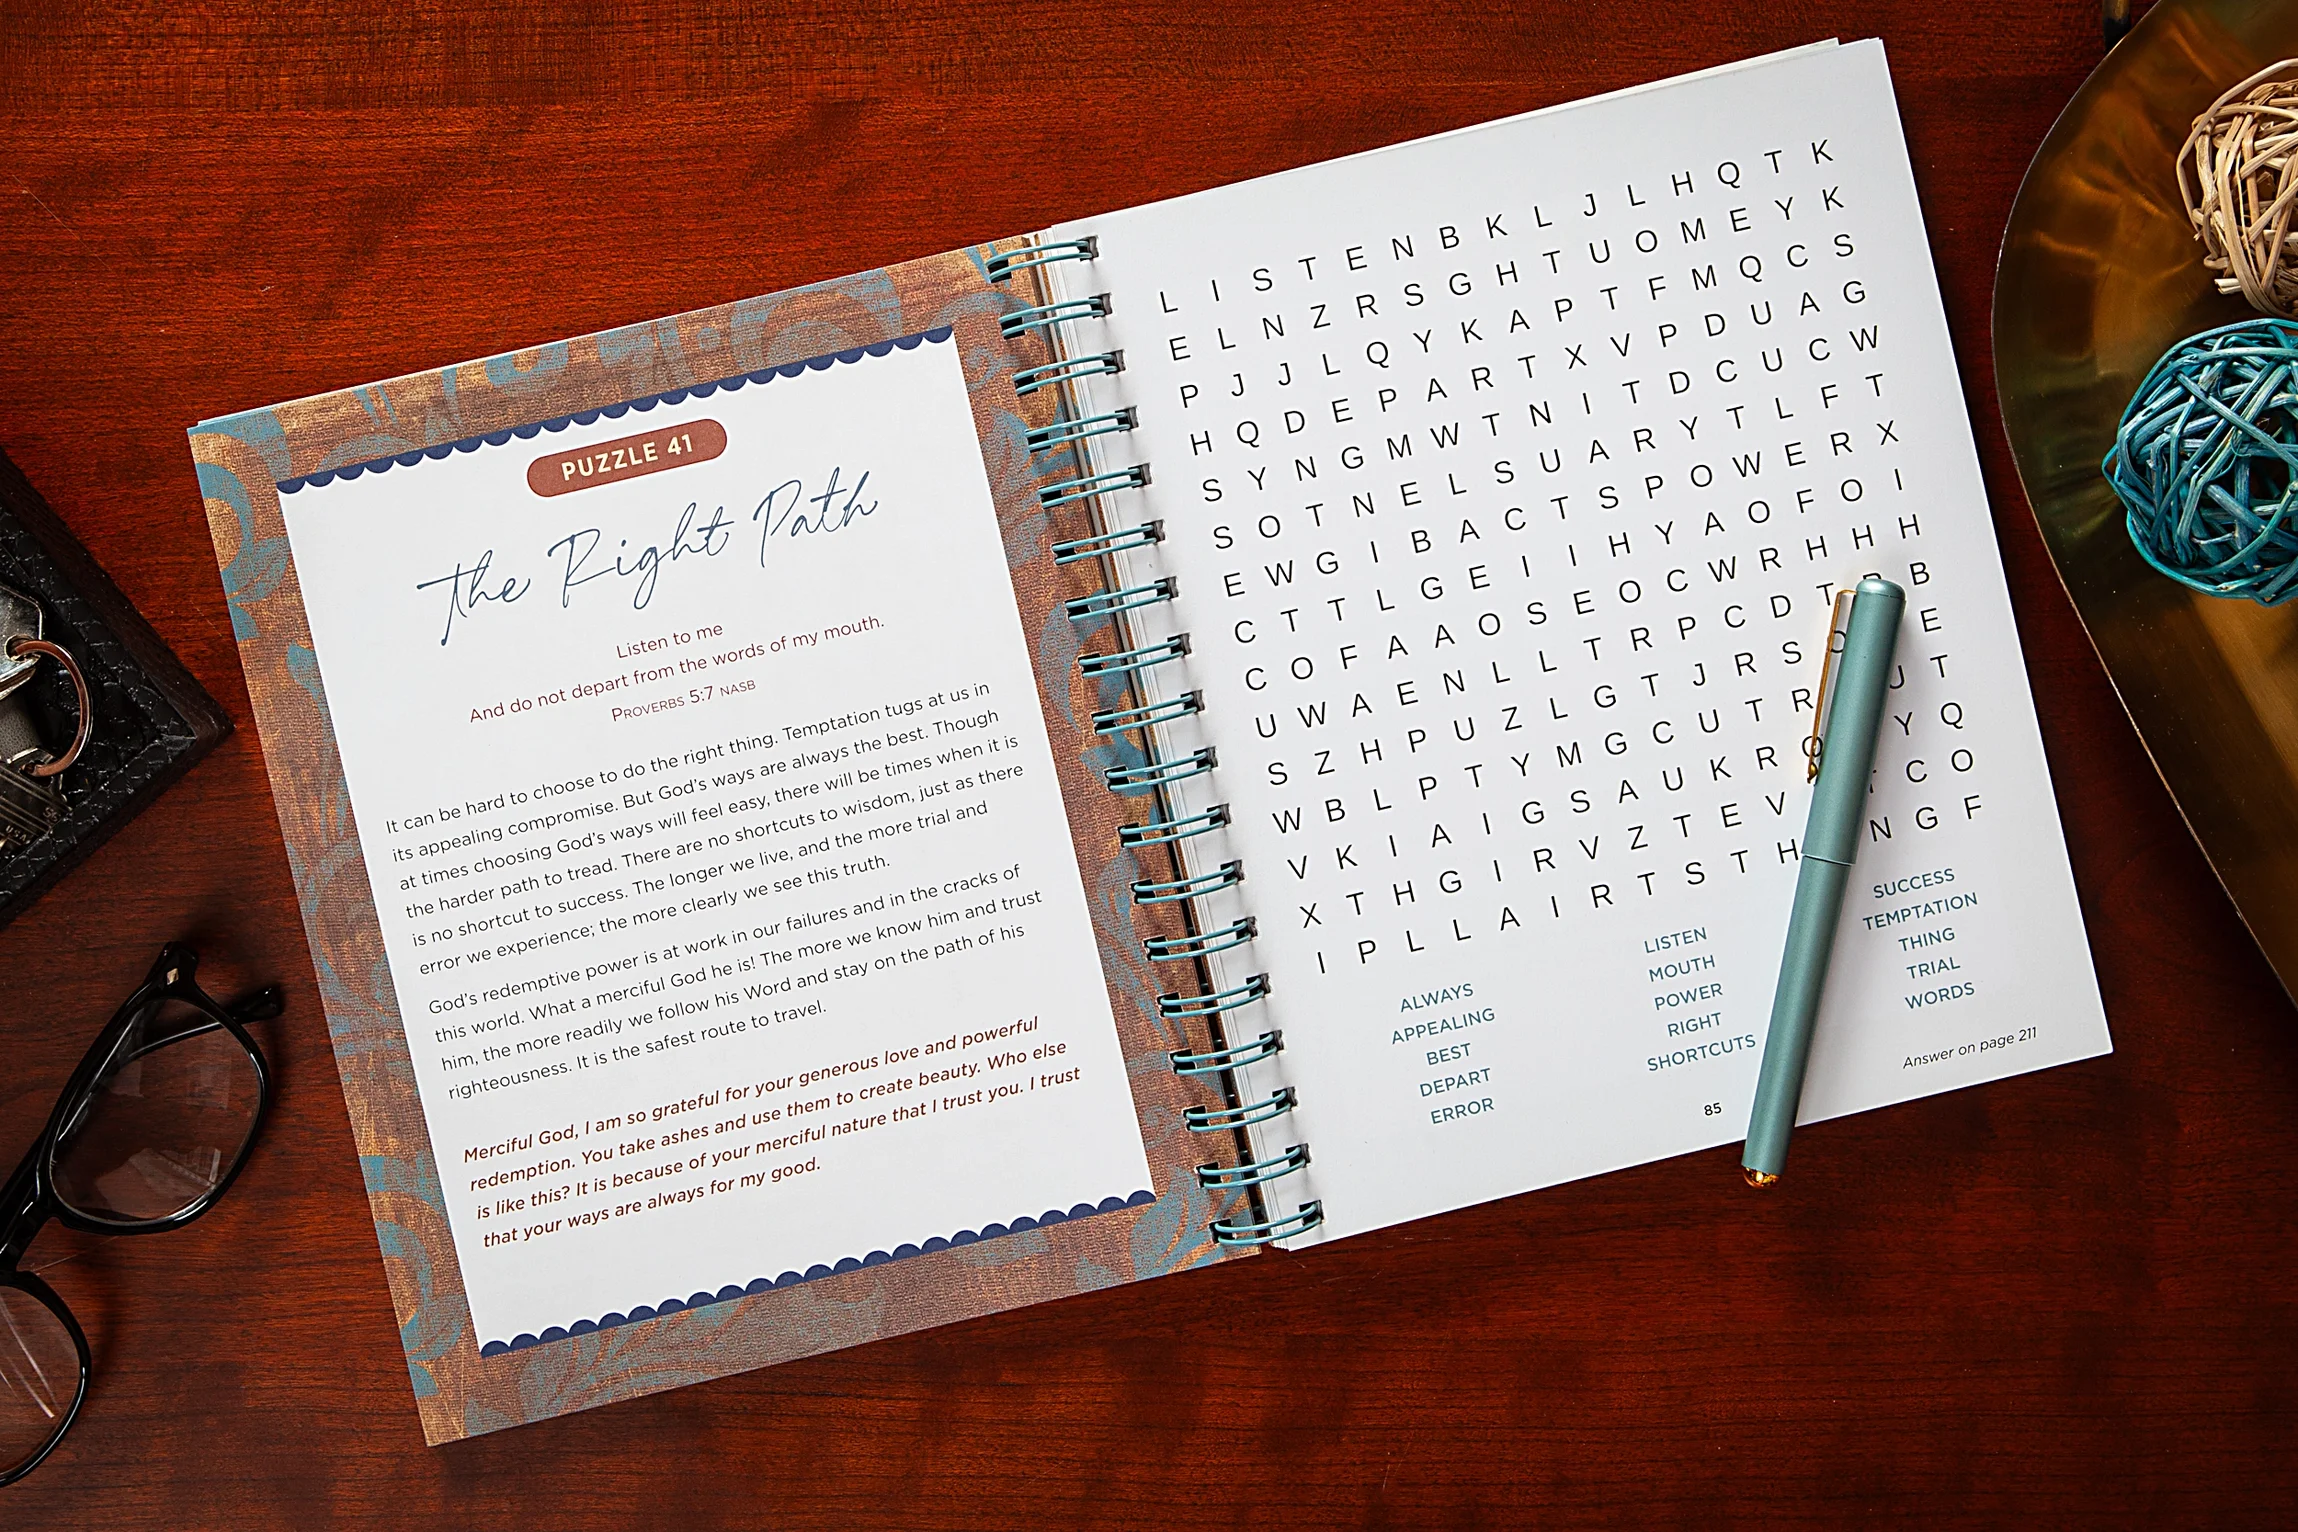 PUZZLE 41
The Right Path
Listen to me
And do not depart from the words of my mouth.
PROVERBS 5:7 NASB
It can be hard to choose to do the right thing. Temptation tugs at us in
its appealing compromise. But God's ways are always the best. Though
at times choosing God's ways will feel easy, there will be times when it is
the harder path to tread. There are no shortcuts to wisdom, just as there
is no shortcut to success. The longer we live, and the more trial and
error we experience; the more clearly we see this truth.
God's redemptive power is at work in our failures and in the cracks of
this world. What a merciful God he is! The more we know him and trust
him, the more readily we follow his Word and stay on the path of his
righteousness. It is the safest route to travel.
Merciful God, I am so grateful for your generous love and powerful
redemption. You take ashes and use them to create beauty. Who else
is like this? It is because of your merciful nature that I trust you. I trust
that your ways are always for my good.
L I S T E N B K L J L H Q T K
E L N Z R S G H T U O M E Y K
P J J L Q Y K A P T F M Q C S
H Q D E P A R T X V P D U A G
S Y N G M W T N I T D C U C W
S O T N E L S U A R Y T L F T
E W G I B A C T S P O W E R X
C T T L G E I I H Y A O F O I
C O F A A O S E O C W R H H H
U W A E N L L T R P C D T B
S Z H P U Z L G T J R S O E
W B L P T Y M G C U T R U T
V K I A I G S A U K R O Y Q
X T H G I R V Z T E V C O
I P L L A I R T S T H N G F
ALWAYS
APPEALING
BEST
DEPART
ERROR
LISTEN
MOUTH
POWER
RIGHT
SHORTCUTS
SUCCESS
TEMPTATION
THING
TRIAL
WORDS
Answer on page 211
85